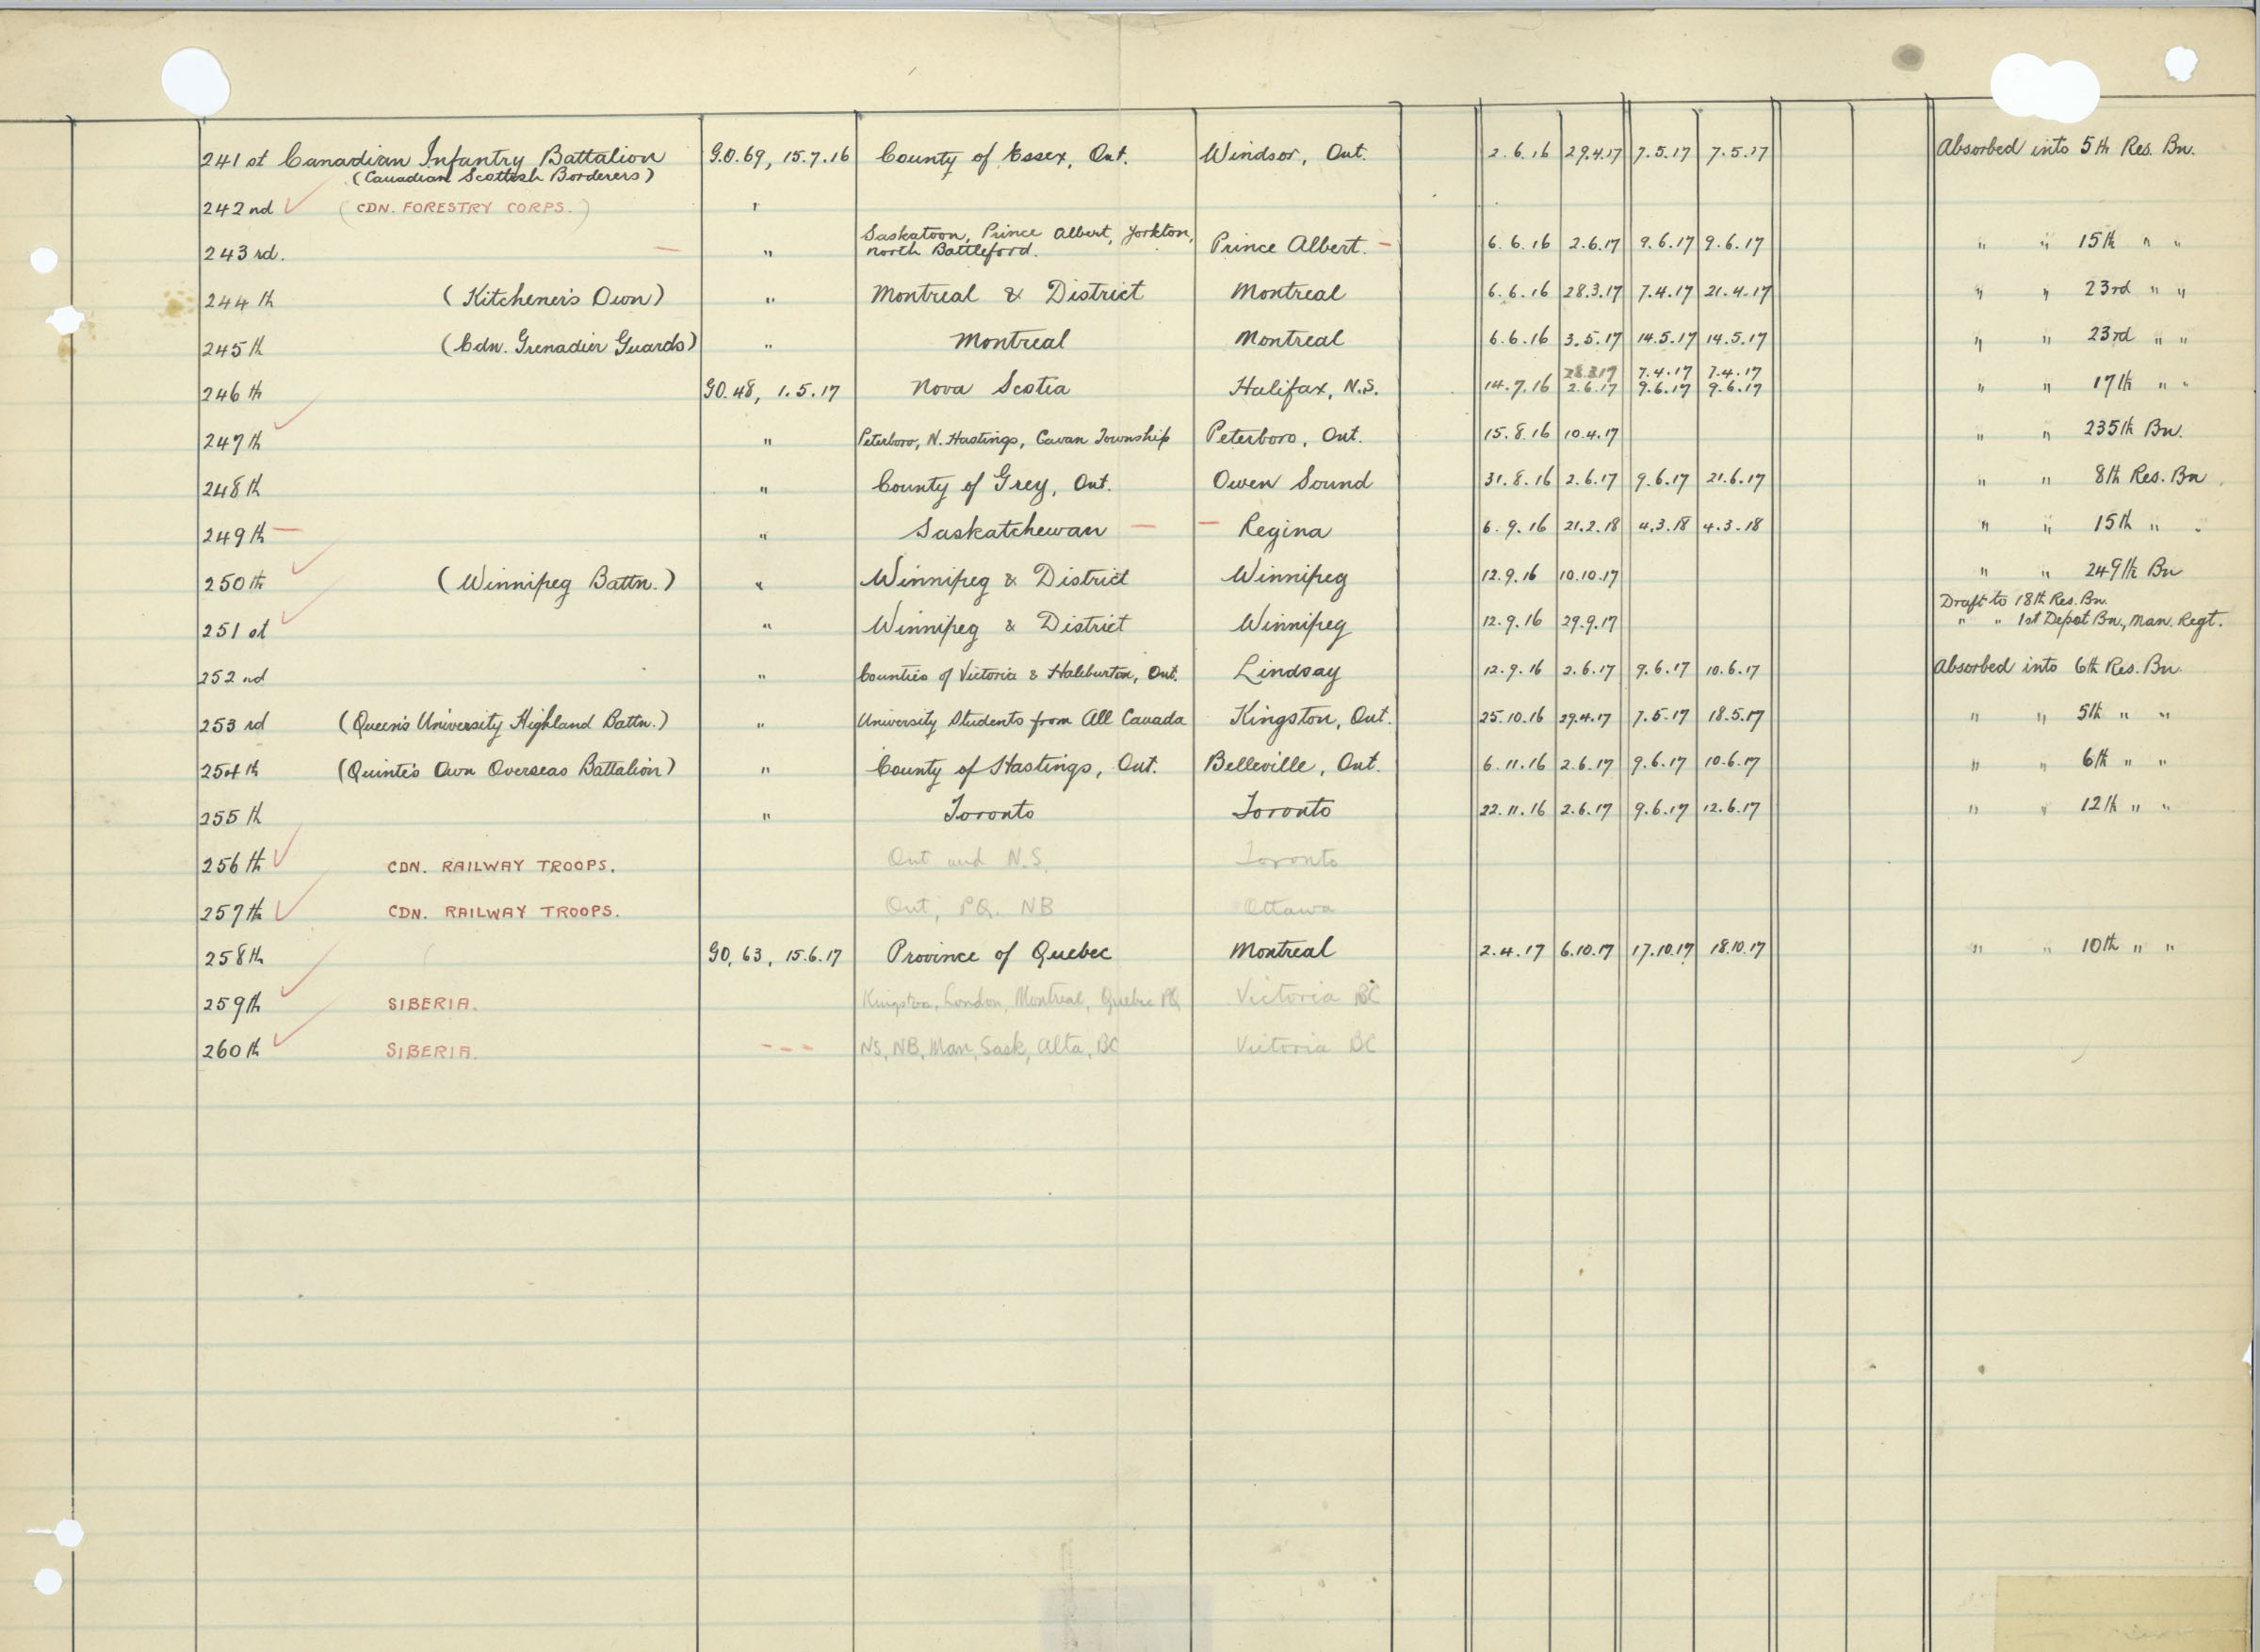 241st Canadian Infantry Battalion G.O. 69, 15.7.16 County of Essex, Ont. Windsor, Ont. 2.6.16 29.4.17 7.5.17 7.5.17 Absorbed into 5th Res. Bn.
(Canadian Scottish Borderers)
242nd (CDN. FORESTRY CORPS.) "
243rd. " Saskatoon, Prince Albert, Yorkton, North Battleford. Prince Albert. 6.6.16 2.6.17 9.6.17 9.6.17 " " 15th " "
244th (Kitchener's Own) " Montreal & District Montreal 6.6.16 28.3.17 7.4.17 21.4.17 " " 23rd " "
245th (Cdn. Grenadier Guards) " Montreal Montreal 6.6.16 3.5.17 14.5.17 14.5.17 " " 23rd " "
28.3.17 7.4.17 7.4.17
246th GO. 48, 1.5.17 Nova Scotia Halifax, N.S. 14.7.16 2.6.17 9.6.17 9.6.17 " " 17th " "
247th " Peterboro, N. Hastings, Cavan Township Peterboro, Ont. 15.8.16 10.4.17 " " 235th Bn.
248th " County of Grey, Ont. Owen Sound 31.8.16 2.6.17 9.6.17 21.6.17 " " 8th Res. Bn.
249th " Saskatchewan Regina 6.9.16 21.2.18 4.3.18 4.3.18 " " 15th " "
250th (Winnipeg Battn.) " Winnipeg & District Winnipeg 12.9.16 10.10.17 " " 249th Bn
Draft to 18th Res. Bn.
251st " Winnipeg & District Winnipeg 12.9.16 29.9.17 " " 1st Depot Bn., Man. Regt.
252nd " Counties of Victoria & Haliburton, Ont. Lindsay 12.9.16 2.6.17 9.6.17 10.6.17 Absorbed into 6th Res. Bn.
253rd (Queen's University Highland Battn.) " University Students from All Canada Kingston, Ont. 25.10.16 29.4.17 7.5.17 18.5.17 " " 5th " "
254th (Quinte's Own Overseas Battalion) " County of Hastings, Ont. Belleville, Ont. 6.11.16 2.6.17 9.6.17 10.6.17 " " 6th " "
255th " Toronto Toronto 22.11.16 2.6.17 9.6.17 12.6.17 " " 12th " "
256th CDN. RAILWAY TROOPS. Ont and N.S. Toronto
257th CDN. RAILWAY TROOPS. Ont, P.Q. NB Ottawa
258th GO. 63, 15.6.17 Province of Quebec Montreal 2.4.17 6.10.17 17.10.17 18.10.17 " " 10th " "
259th SIBERIA. Kingston, London, Montreal, Quebec PQ Victoria BC
260th SIBERIA. --- NS, NB, Man, Sask, Alta, BC Victoria BC